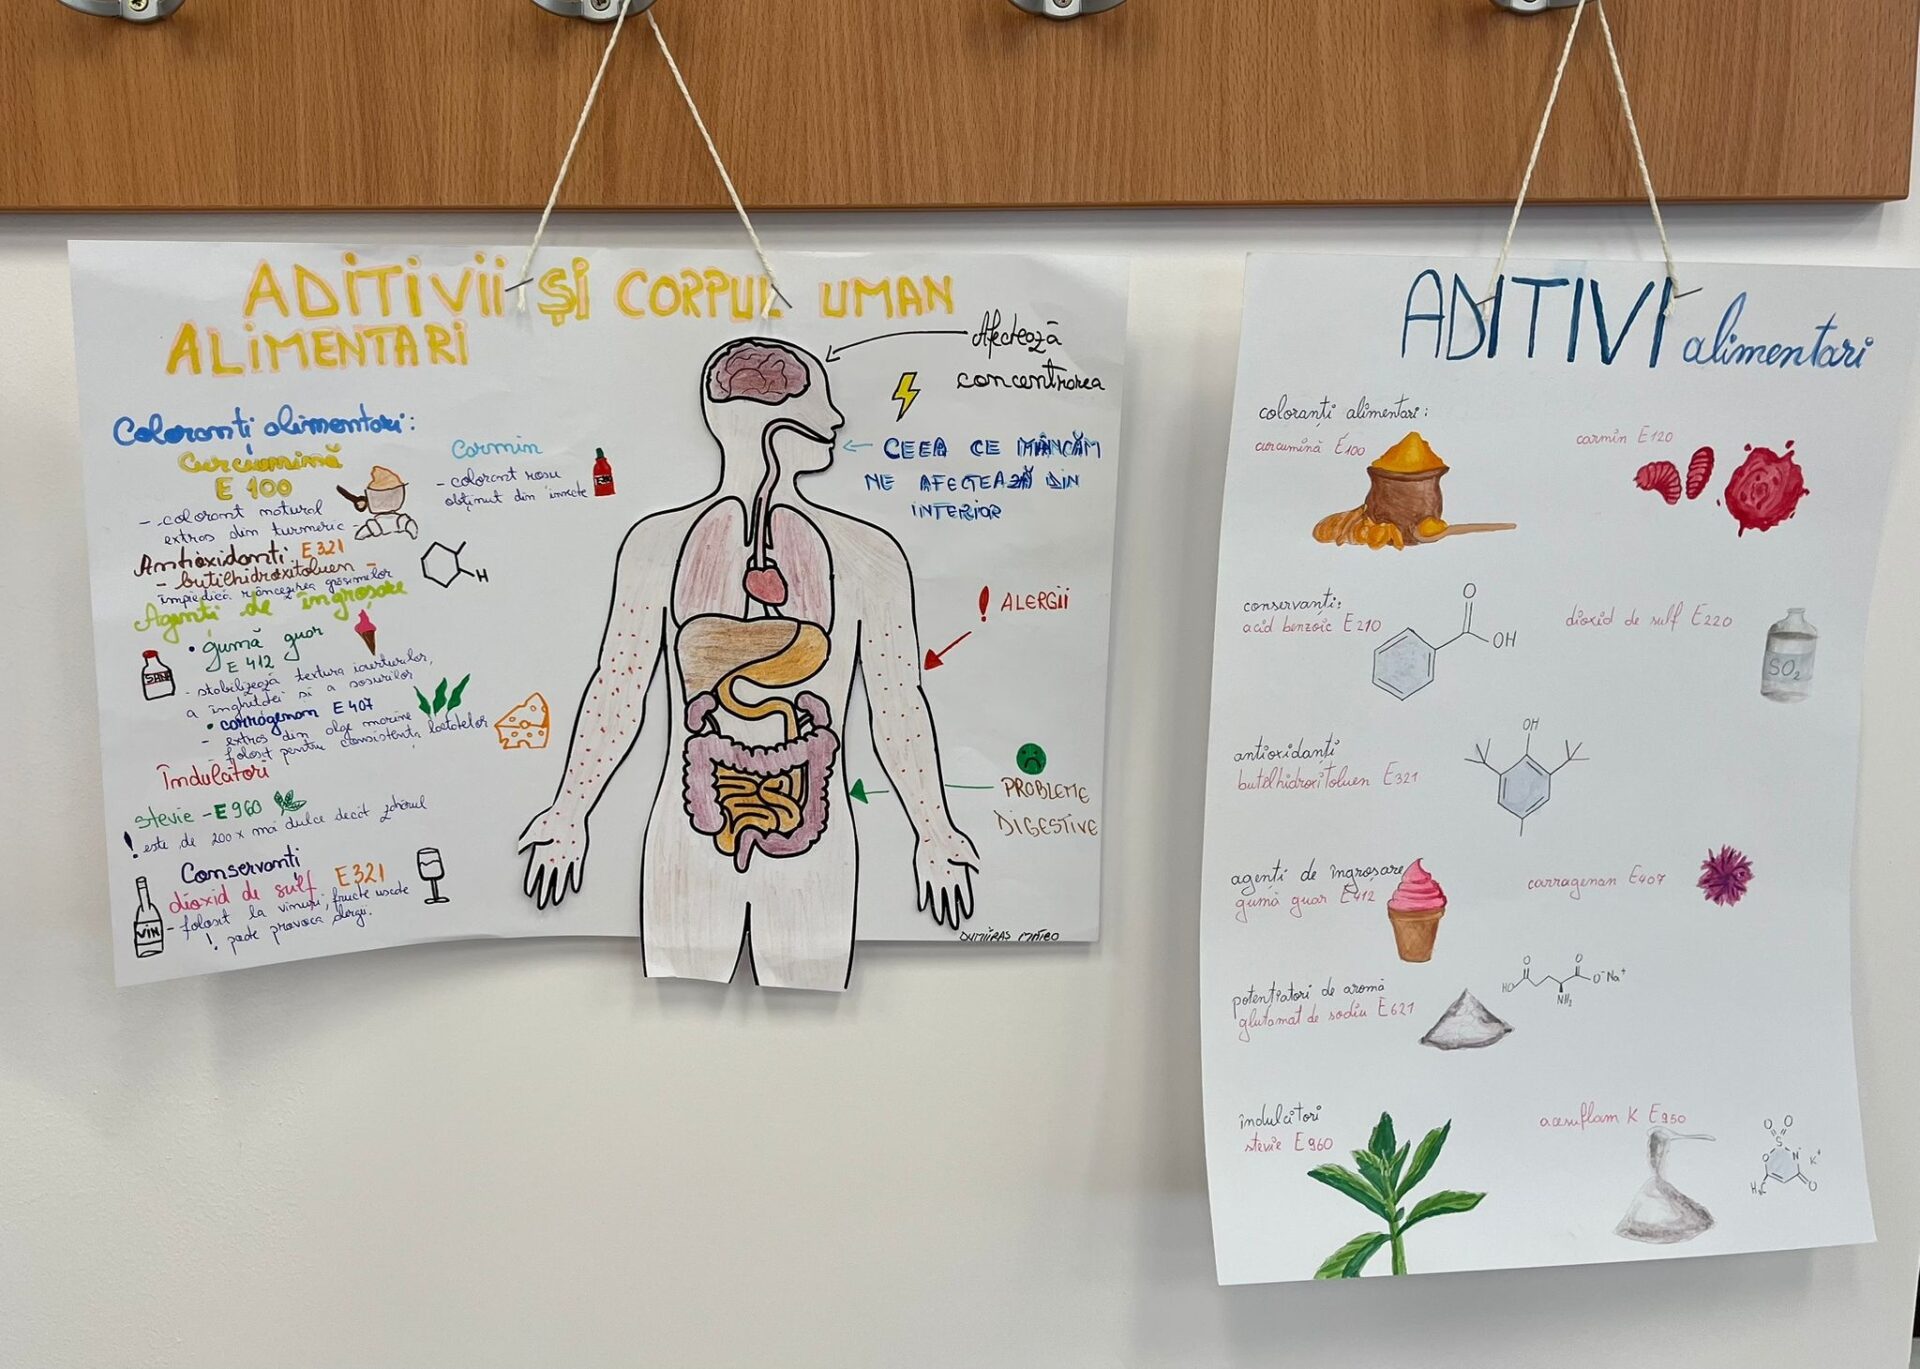 ADITIVII ȘI CORPUL UMAN
ALIMENTARI
Coloranți alimentari:
Curcumină
E 100
- colorant natural
extras din turmeric
Carmin
- colorant rosu
obtinut din insecte
Antioxidanti E321
- butilhidroxitoluen -
împiedică râncezirea grăsimilor
H
Agenți de îngroșare
• gumă guar
E 412
- stabilizează textura iaurturilor,
a înghițdei si a sosurilor
• carragenan E407
- extras din alge marine
- folosit pentru consistența lactatelor
Îndulcitori
stevie - E960
! este de 200x mai dulce decât zahărul
Conservanți
dioxid de sulf E321
- folosit la vinuri, fructe uscate
! poate provoca alergii.
VIN
Afectează
concentrarea
CEEA CE MÂNCĂM
NE AFECTEAZĂ DIN
INTERIOR
! ALERGII
PROBLEME
DIGESTIVE
ADITIVI alimentari
coloranți alimentari:
curcumină E100
carmin E120
conservanți:
acid benzoic E210
O
OH
dioxid de sulf E220
SO₂
antioxidanți
butilhidroxitoluen E321
OH
agenți de îngroșare
gumă guar E412
carragenan E407
potențiatori de aromă
glutamat de sodiu E621
HO O O O⁻Na⁺
NH₂
îndulcitori
stevie E960
acesulfam K E950
O O
S
O N⁻ K⁺
H₃C O